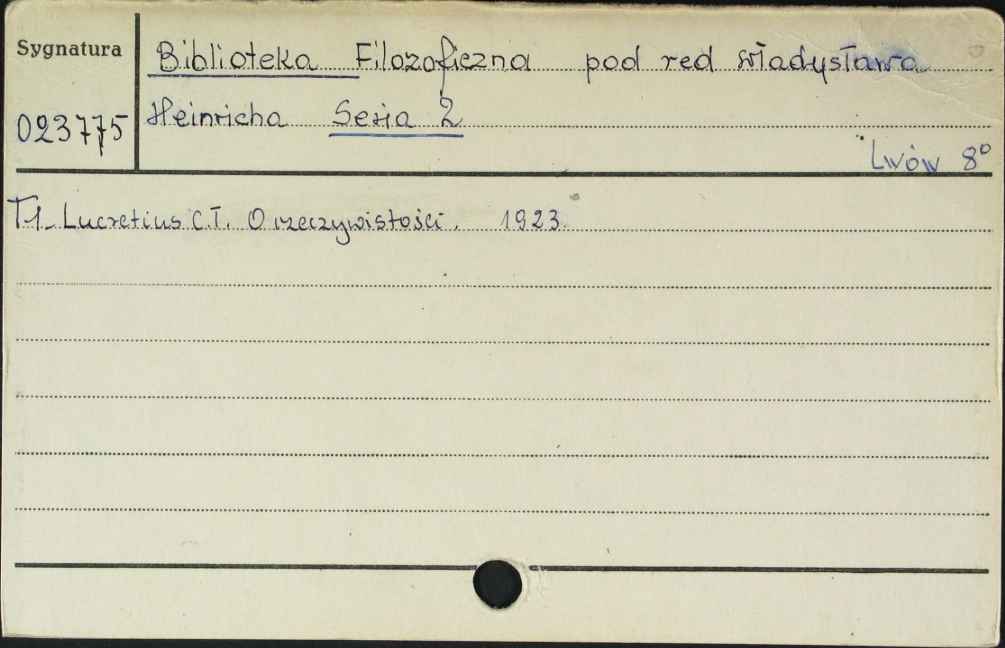 Sygnatura
Biblioteka Filozoficzna pod red Władysława
023775
Heinricha Seria 2
Lwów 8°
T1. Lucretius C.T. O rzeczywistości. 1923.